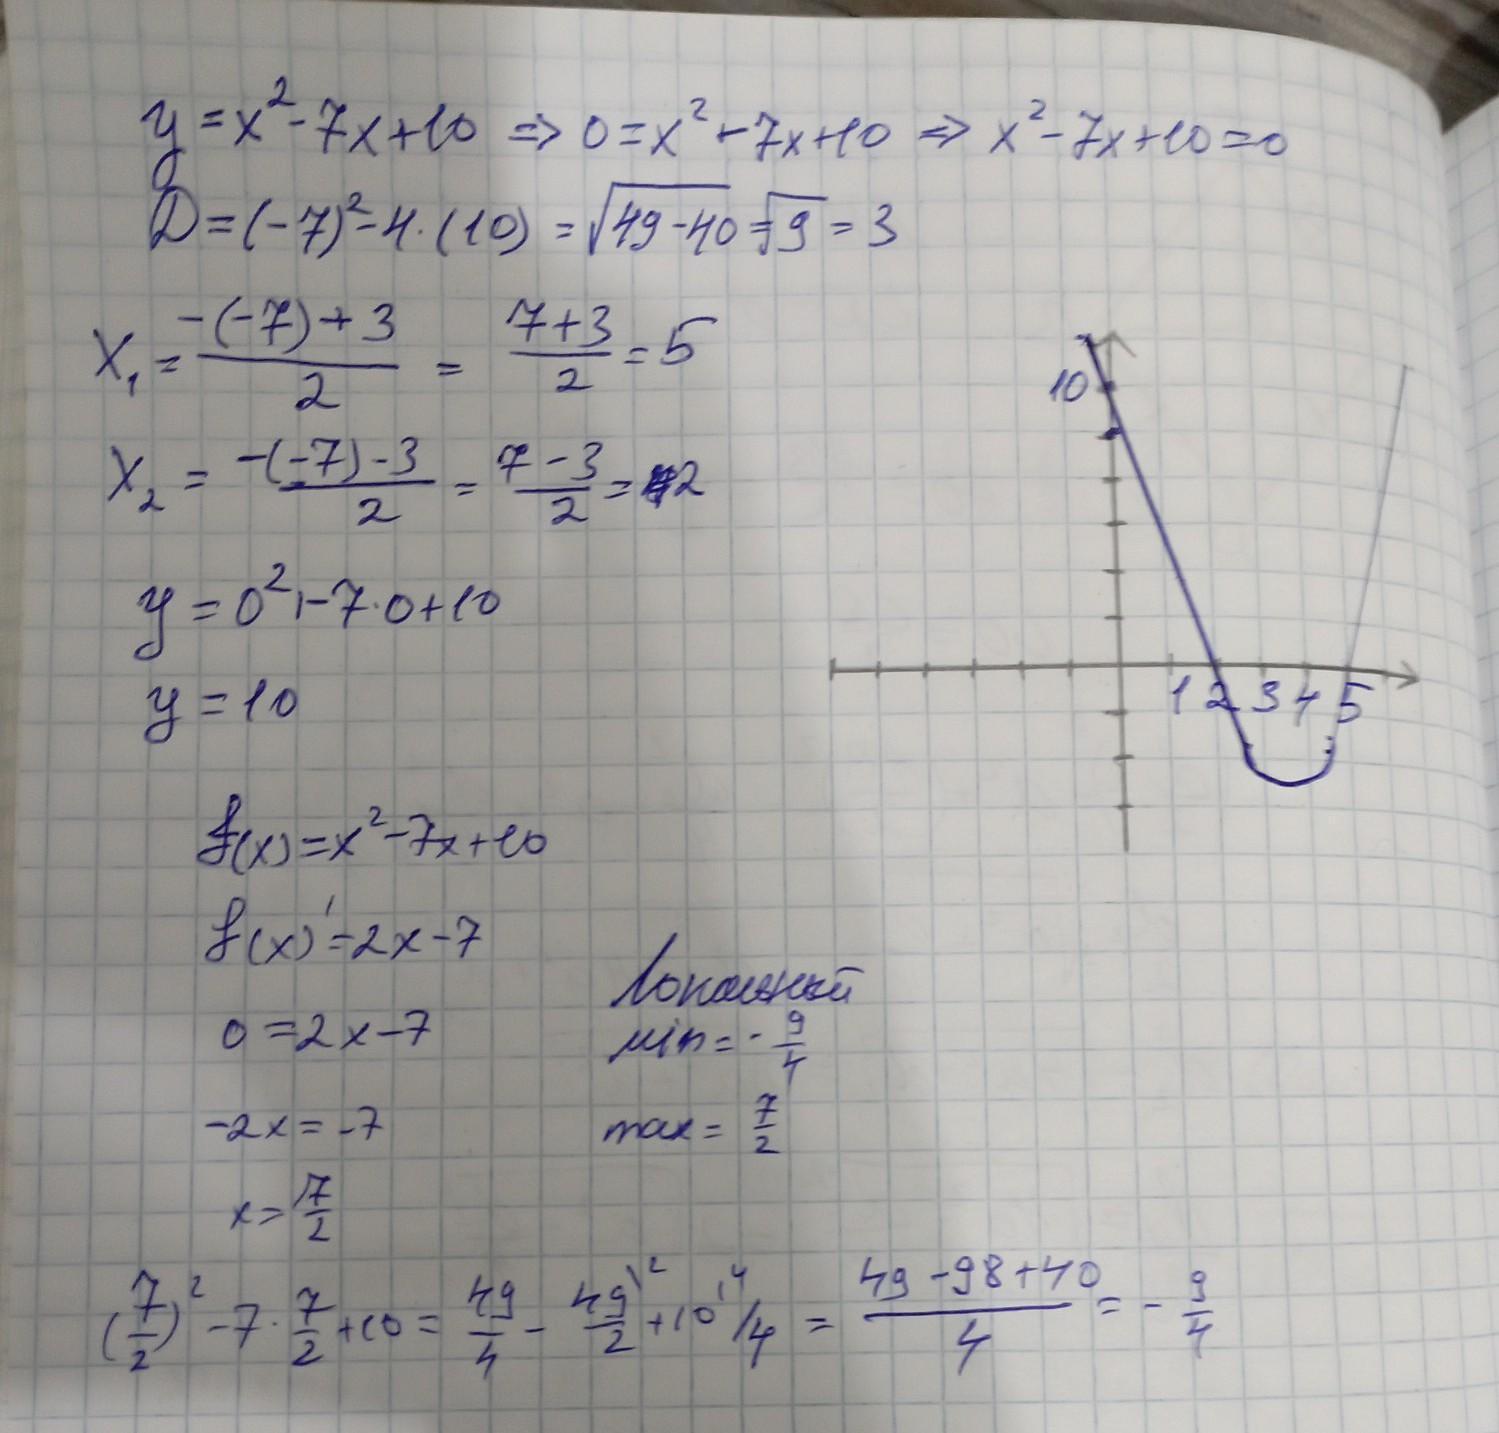 y = x² - 7x + 10 => 0 = x² - 7x + 10 => x² - 7x + 10 = 0
D = (-7)² - 4 · (10) = √49 - 40 = √9 = 3
X₁ = -(-7) + 3 / 2 = 7 + 3 / 2 = 5
X₂ = -(-7) - 3 / 2 = 7 - 3 / 2 = 2
y = 0² - 7 · 0 + 10
y = 10
10
1 2 3 4 5
f(x) = x² - 7x + 10
f(x)' = 2x - 7
0 = 2x - 7
-2x = -7
x = 7/2
Локальный
min = - 9/4
max = 7/2
(7/2)² - 7 · 7/2 + 10 = 49/4 - 49/2 \2 + 10 \4 /4 = 49 - 98 + 40 / 4 = - 9/4